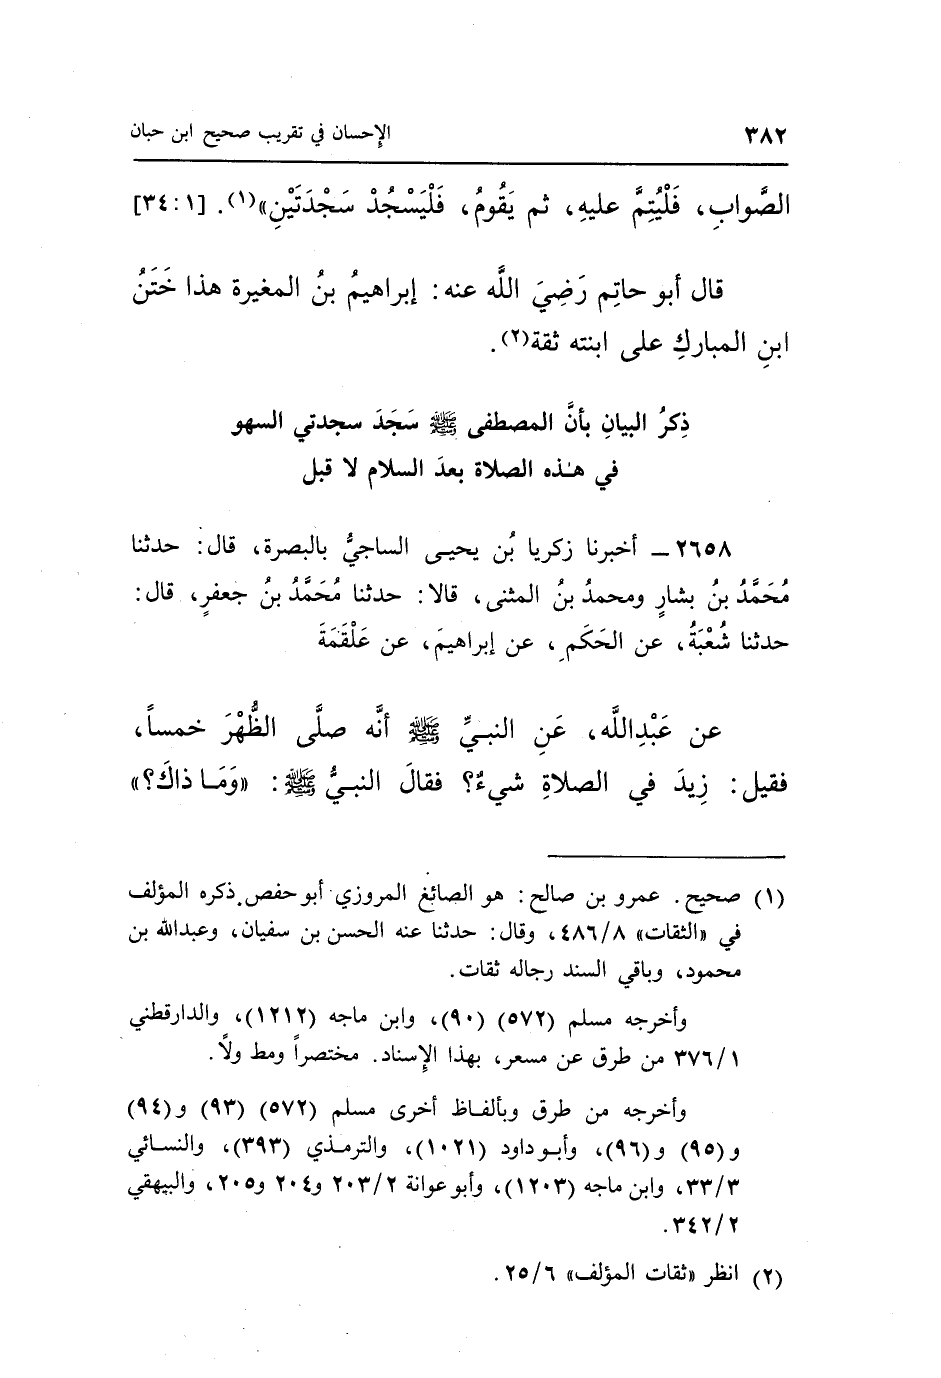 ٣٨٢ الإحسان في تقريب صحيح ابن حبان
الصَّوابِ، فَلْيُتِمَّ عليهِ، ثم يَقُومُ، فَلْيَسْجُدْ سَجْدَتَيْنِ»(١). [٣٤:١]
قال أبو حاتِم رَضِيَ اللَّه عنه: إبراهيمُ بنُ المغيرة هذا خَتَنُ
ابنِ المباركِ على ابنته ثقة(٢).
ذِكرُ البيانِ بأنَّ المصطفى ﷺ سَجَدَ سجدتي السهو
في هـٰذه الصلاة بعدَ السلام لا قبل
٢٦٥٨ ــ أخبرنا زكريا بُن يحيـى الساجيُّ بالبصرة، قال: حدثنا
مُحَمَّدُ بنُ بشارٍ ومحمدُ بنُ المثنى، قالا: حدثنا مُحَمَّدُ بنُ جعفرٍ، قال:
حدثنا شُعْبَةُ، عن الحَكَمِ، عن إبراهيمَ، عن عَلْقَمَةَ
عن عَبْدِاللَّه، عَنِ النبـيِّ ﷺ أنَّه صلَّى الظُّهْرَ خمساً،
فقيل: زِيدَ في الصلاةِ شيءٌ؟ فقالَ النبـيُّ ﷺ: «وَمَا ذاكَ؟»
(١) صحيح. عمرو بن صالح: هو الصائغ المروزي أبو حفص. ذكره المؤلف
في «الثقات» ٤٨٦/٨، وقال: حدثنا عنه الحسن بن سفيان، وعبدالله بن
محمود، وباقي السند رجاله ثقات.
وأخرجه مسلم (٥٧٢) (٩٠)، وابن ماجه (١٢١٢)، والدارقطني
٣٧٦/١ من طرق عن مسعر، بهذا الإسناد. مختصراً ومط ولاً.
وأخرجه من طرق وبألفاظ أخرى مسلم (٥٧٢) (٩٣) و(٩٤)
و(٩٥) و(٩٦)، وأبـو داود (١٠٢١)، والترمـذي (٣٩٣)، والنسـائي
٣٣/٣، وابن ماجه (١٢٠٣)، وأبو عوانة ٢٠٣/٢ و٢٠٤ و٢٠٥، والبيهقي
٣٤٢/٢.
(٢) انظر «ثقات المؤلف» ٢٥/٦.